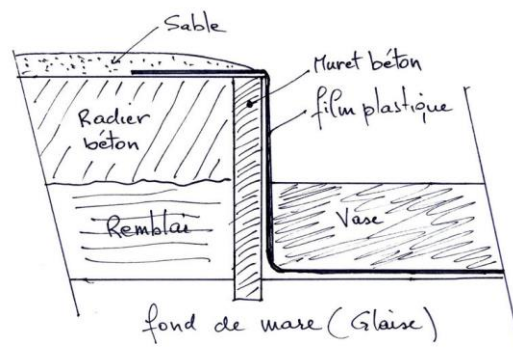 Sable
Muret béton
film plastique
Radier
béton
Remblai
Vase
fond de mare (Glaise)